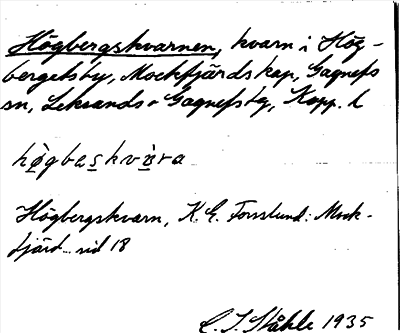 Högbergskvarnen, kvarn i Hög-
bergetsby, Mockfjärds kap, Gagnefs
sn, Leksands o Gagnefs tg, Kopp. l
hògbaskvàra
Högbergskvarn, K. E. Forsslund: Mock-
fjärd sid 18
C. I. Ståhle 1935